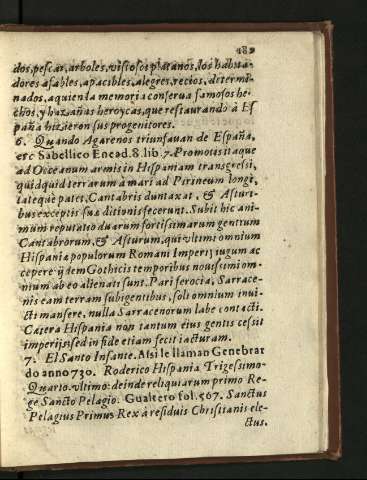 189
dos, pescar, arboles, vistosos platanos, los habita-
dores afables, apacibles, alegres, recios, determi-
nados, a quien la memoria conserua famosos he-
chos, y hazañas heroycas, que restaurando à Es
paña hizieron sus progenitores.
6. Quando Agarenos triunfauan de España,
erc Sabellico Enead. 8. lib. 7. Promotis itaque
ad Occeanum armis in Hispaniam transgressi,
quidquid terrarum à mari ad Pirineum longè,
latèque patet, Cantabris duntaxat, & Asturi
bus exceptis suæ ditionis fecerunt. Subit hic ani-
mum reputatio duarum fortissimarum gentium
Cantabrorum, & Asturum, qui vltimi omnium
Hispania populorum Romani Imperij iugum ac
cepere: ijdem Gothicis temporibus nouissimi om-
nium ab eo alienati sunt. Pari ferocia, Sarrace-
nis eam terram subigentibus, soli omnium inui-
cti mansere, nulla Sarracenorum labe contacti.
Cætera Hispania non tantum eius gentis cessit
imperijs sed in fide etiam fecit iacturam.
7. El Santo Infante. Assi le llaman Genebrar
do anno 730. Roderico Hispania Trigessimo-
Quarto vltimo: deinde reliquiarum primo Re-
ge Sancto Pelagio. Gualtero fol. 567. Sanctus
Pelagius Primus Rex à residuis Christianis ele-
ctus.